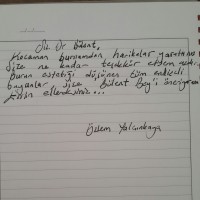 Op Dr Bülent,
Kocaman burnumdan harikalar yarattınız
Size ne kadar teşekkür etsem azdır.
Burun estetiği düşünen tüm endişeli
bayanlar size Bülent Bey'i öneriyorum
ellerinize...
Özlem Yalçınkaya